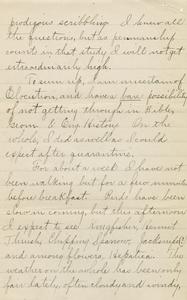 prodigous scribbling. I knew all
the questions, but as penmanship
counts in that study I will not get
extraordinarily high.
To sum up, I am uncertain of
Elocution, and have a bare possibility
of not getting through in Bible,
Geom. & Eng. History. On the
whole, I did as well as I could
expect after quarantine.
For about a week I have not
been walking but for a few minutes
before breakfast. Birds have been
slow in coming, but this afternoon
I expect to see Kingfisher, Hermit
Thrush, Chipping Sparrow,
and among flowers, Hepatica. The
weather on the whole has been only
fair lately, often cloudy and windy,